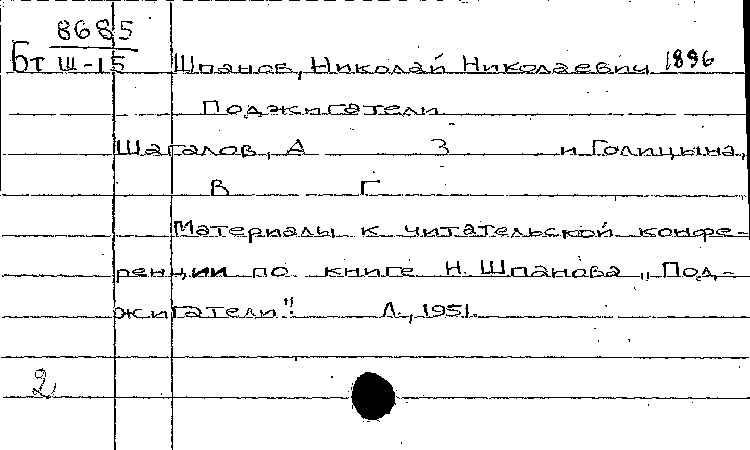 8685
Бт Ш-15 Шпанов, Николай Николаевич 1896
Поджигатели
Шагалов, А З и Голицына,
В Г
Материалы к читательской конфе-
ренции по книге Н. Шпанова „Под-
жигатели". Л., 1951.
2